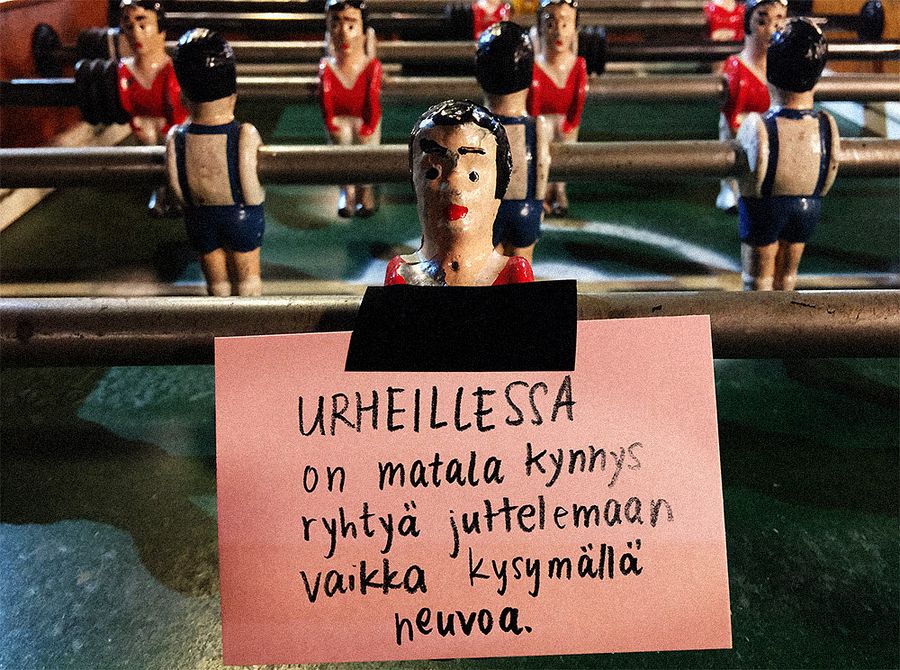 URHEILLESSA
on matala kynnys
ryhtyä juttelemaan
vaikka kysymällä
neuvoa.